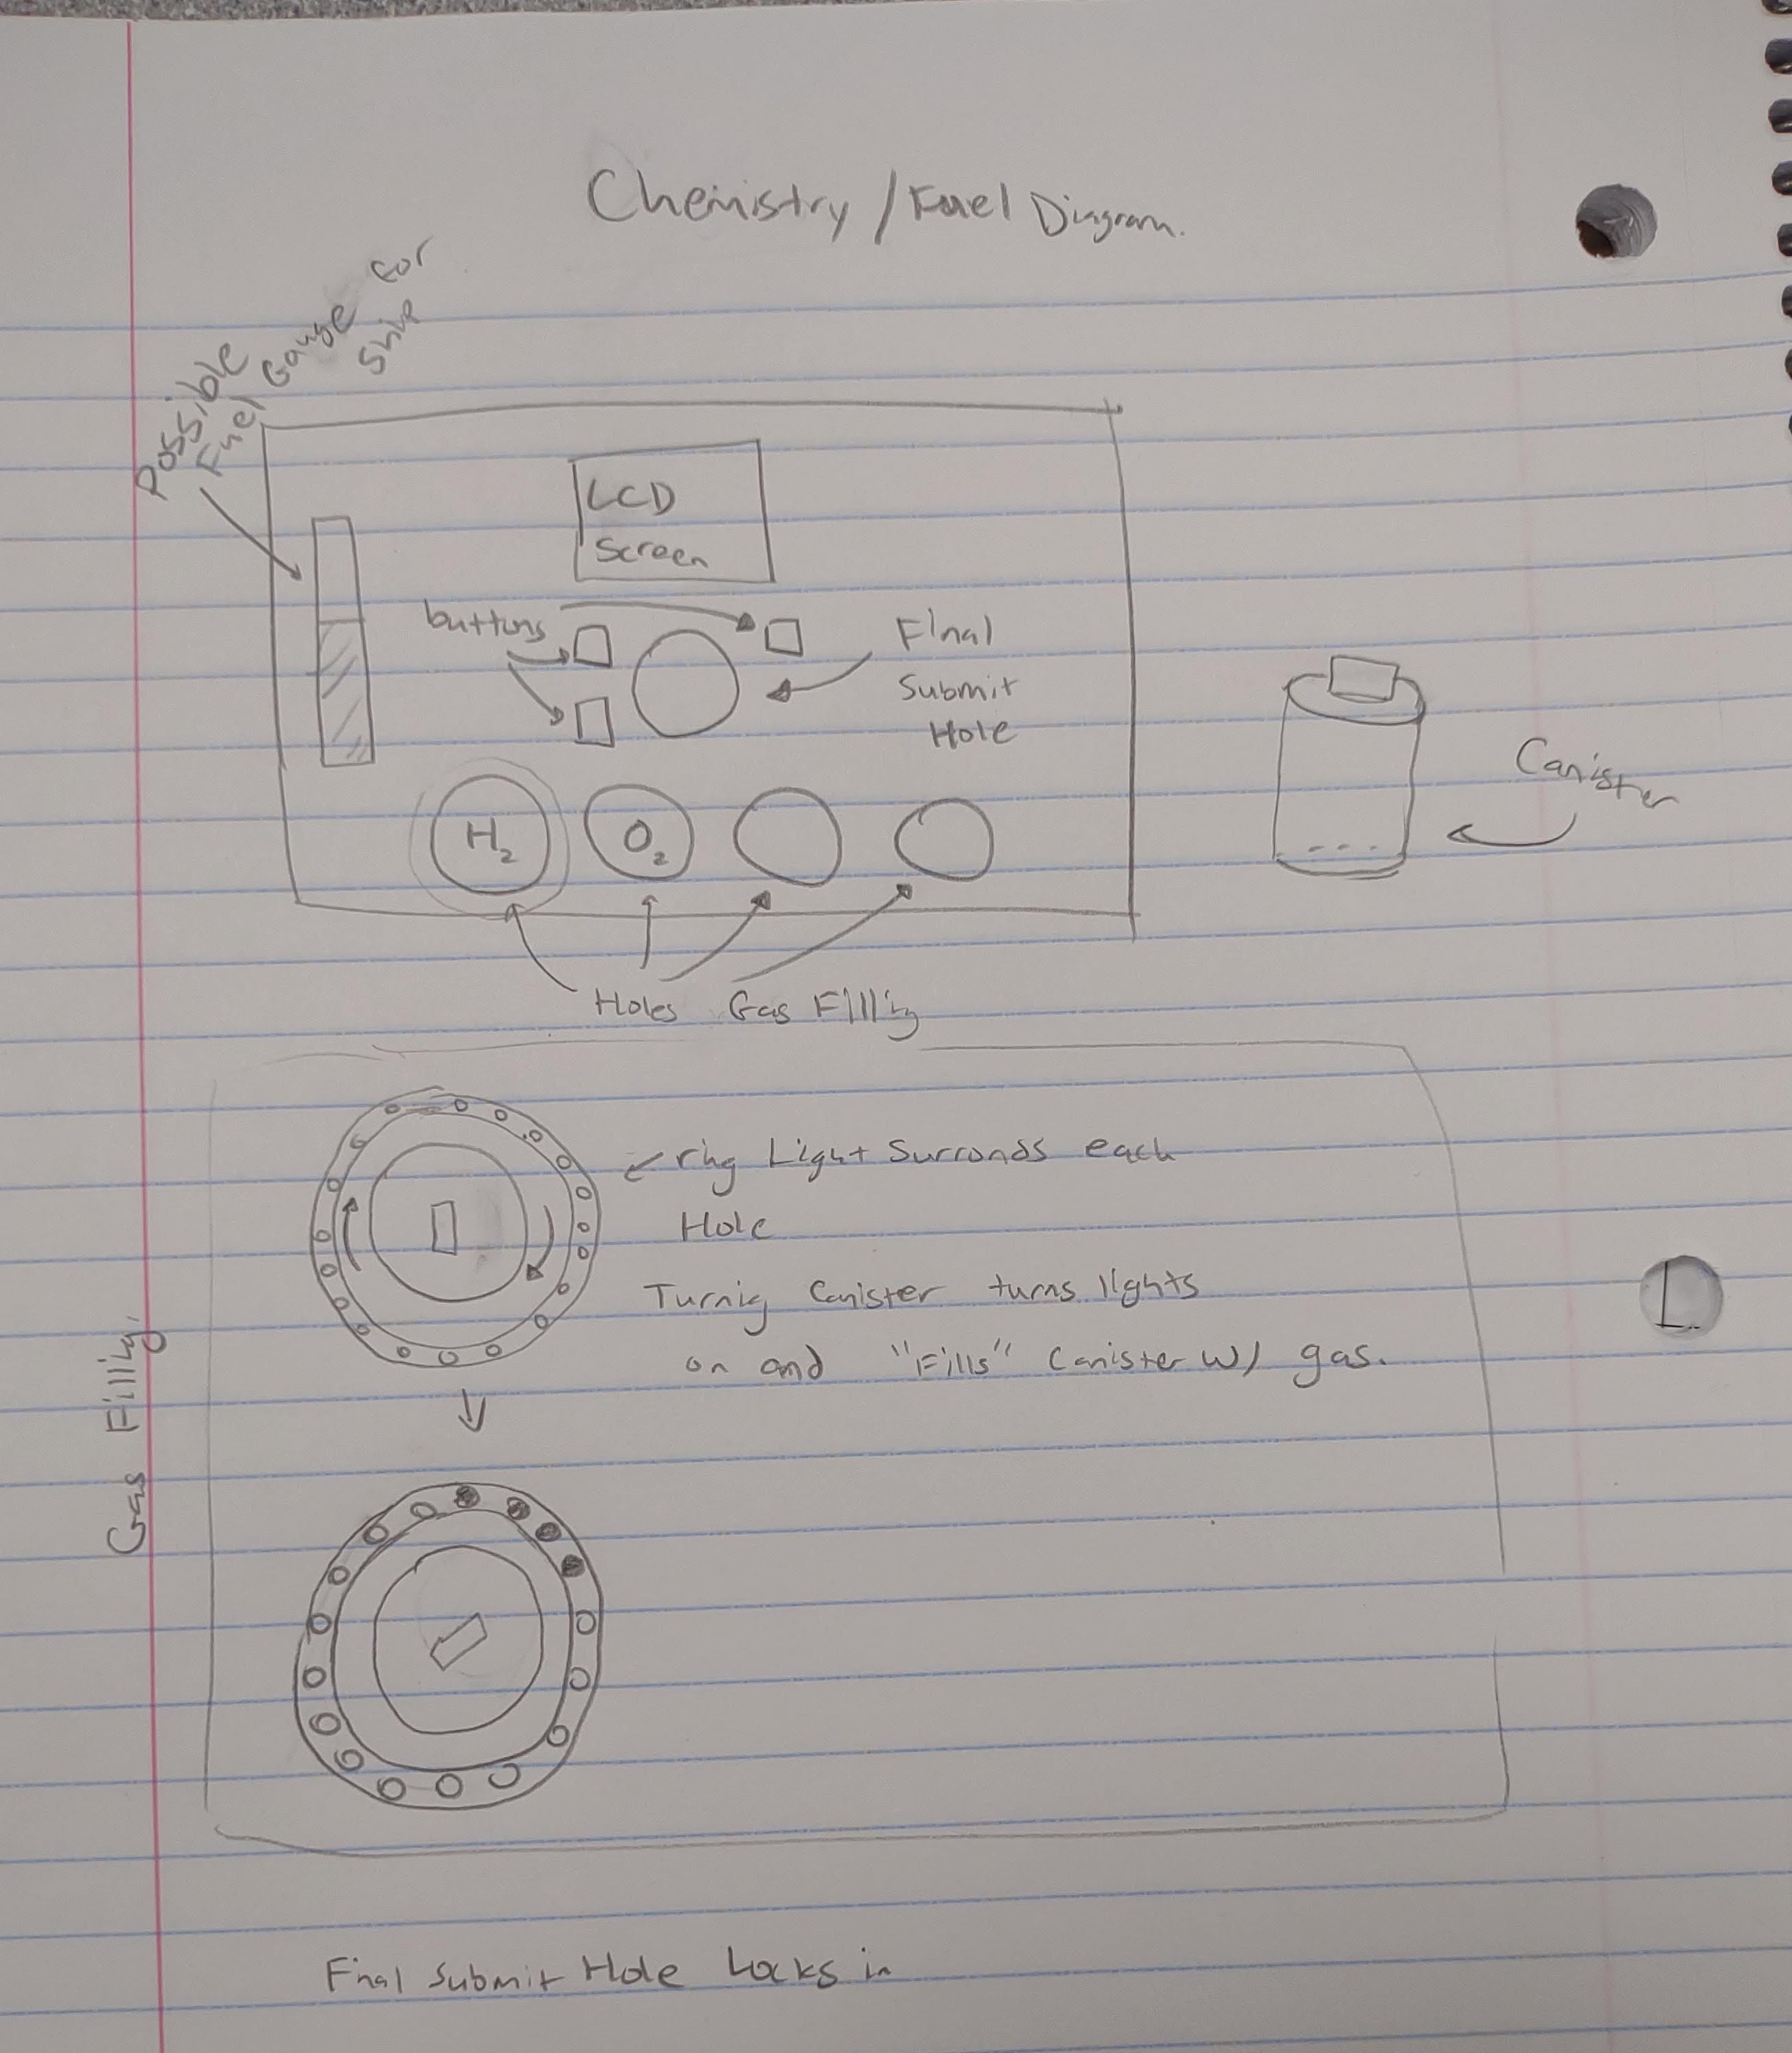 Chemistry / Fuel Diagram.
Possible
Fuel Gauge for
Ship
LCD
Screen
buttons
Final
Submit
Hole
Canister
H2
O2
Holes Gas Filling
ring Light Surronds each
Hole
Turnig Canister turns lights
on and "Fills" Canister W/ gas.
Gas Filling.
Final Submit Hole Locks in